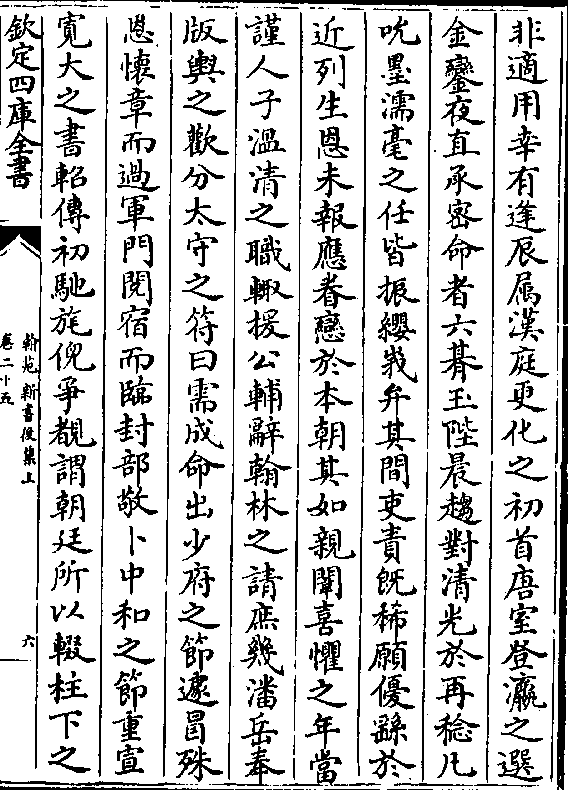 非適用幸有逢辰属漢庭更化之初首唐室登瀛之選
金鑾夜直承密命者六朞玉陛晨趨對清光於再稔凡
吮墨濡毫之任皆振纓峩弁其間吏責既稀願優繇於
近列生恩未報應眷戀於本朝其如親闈喜懼之年當
謹人子溫凊之職輙援公輔辭翰林之請庶幾潘岳奉
版輿之歡分太守之符曰需成命出少府之節遽冒殊
恩懷章而過軍門閱宿而臨封部敬卜中和之節重宣
寛大之書軺傳初馳旄倪爭覩謂朝廷所以輟柱下之
欽定四庫全書
翰苑新書後集上
卷二十五
六